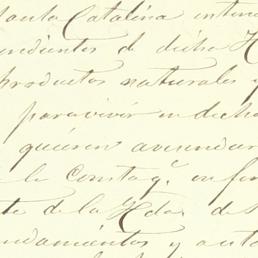 Santa Catalina inten
endientes d dicha H
productos naturales y
para vivir en dicha
quieren avecindar
le consta q. en fue
te de la Hda. de
ndamientos y auto